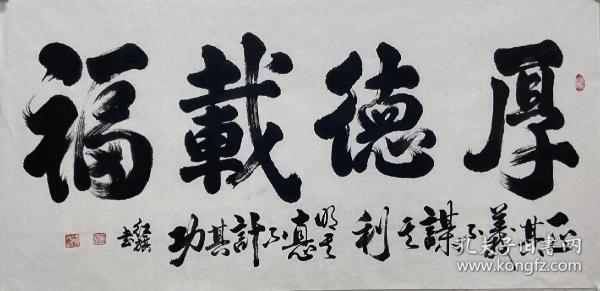 厚德載福
正其義不謀其利明其不計其功
書
孔夫子旧书网
www.kongfz.com